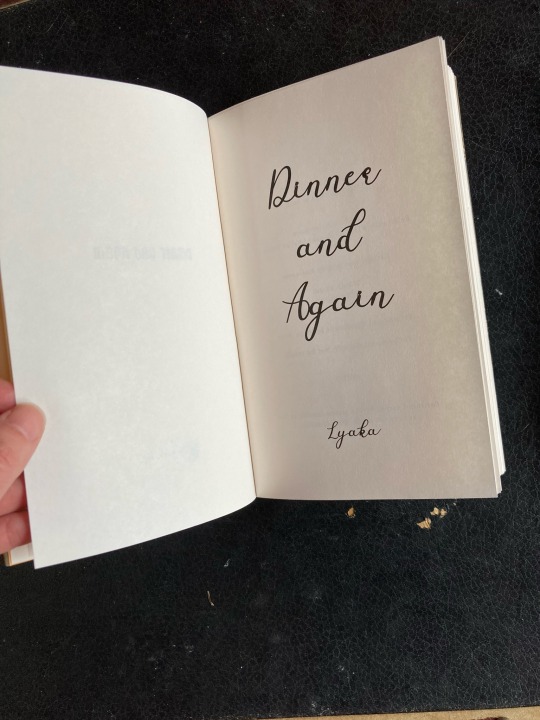 Dinner
and
Again
Lyaka